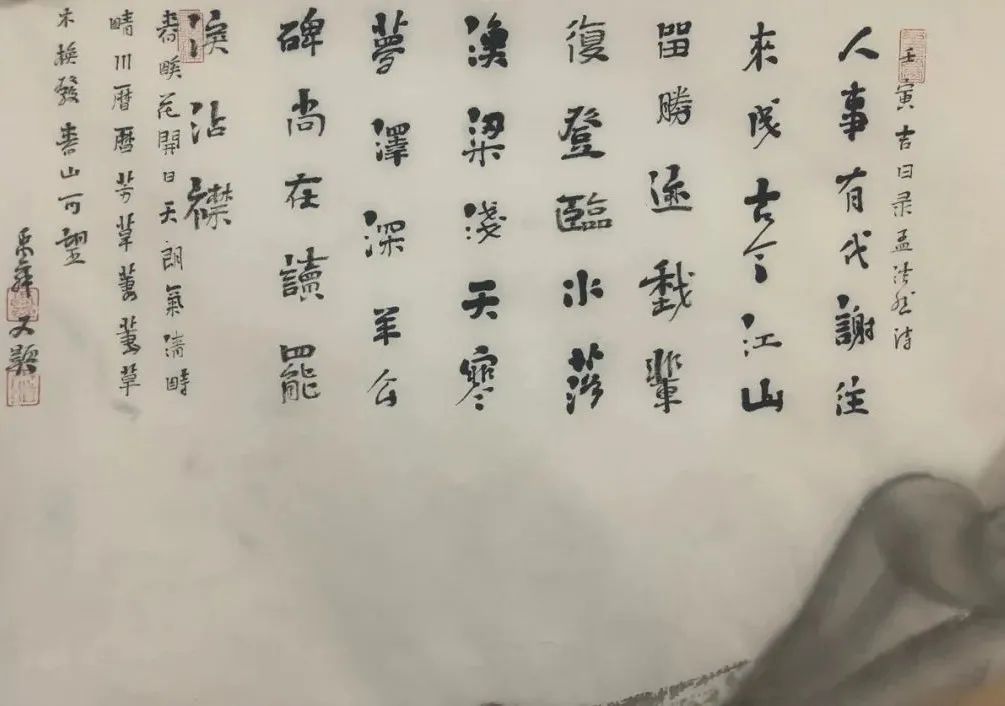 壬寅吉日录孟浩然诗
人事有代謝往
來成古今江山
留勝迹我輩
復登臨水落
漁梁淺天寒
夢澤深羊公
碑尚在讀罷
淚沾襟
春暖花開日天朗氣清時
晴川曆曆芳草萋萋草
木焕發青山可望
又題